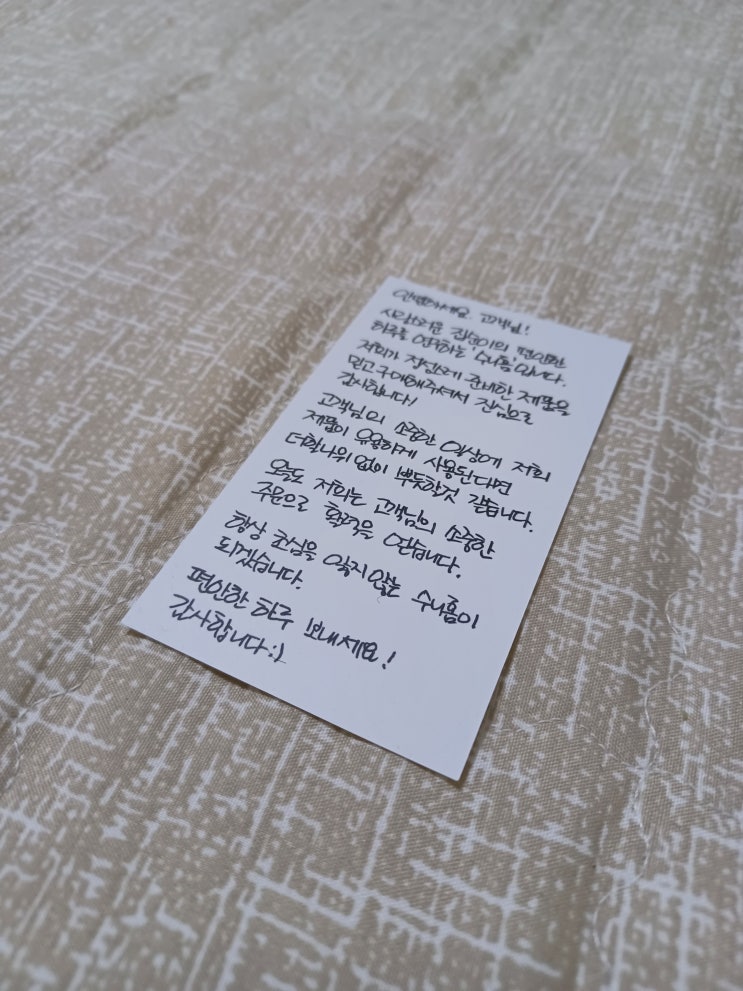 안녕하세요. 고객님!
사랑스러운 집순이의 편안한
하루를 연구하는 '수니홈'입니다.
저희가 정성스레 준비한 제품을
믿고 구매해주셔서 진심으로
감사합니다!
고객님의 소중한 일상에 저희
제품이 유용하게 사용된다면
더할나위없이 뿌듯할것 같습니다.
오늘도 저희는 고객님의 소중한
주문으로 활력을 얻습니다.
항상 초심을 잃지않는 수니홈이
되겠습니다.
편안한 하루 보내세요!
감사합니다:)